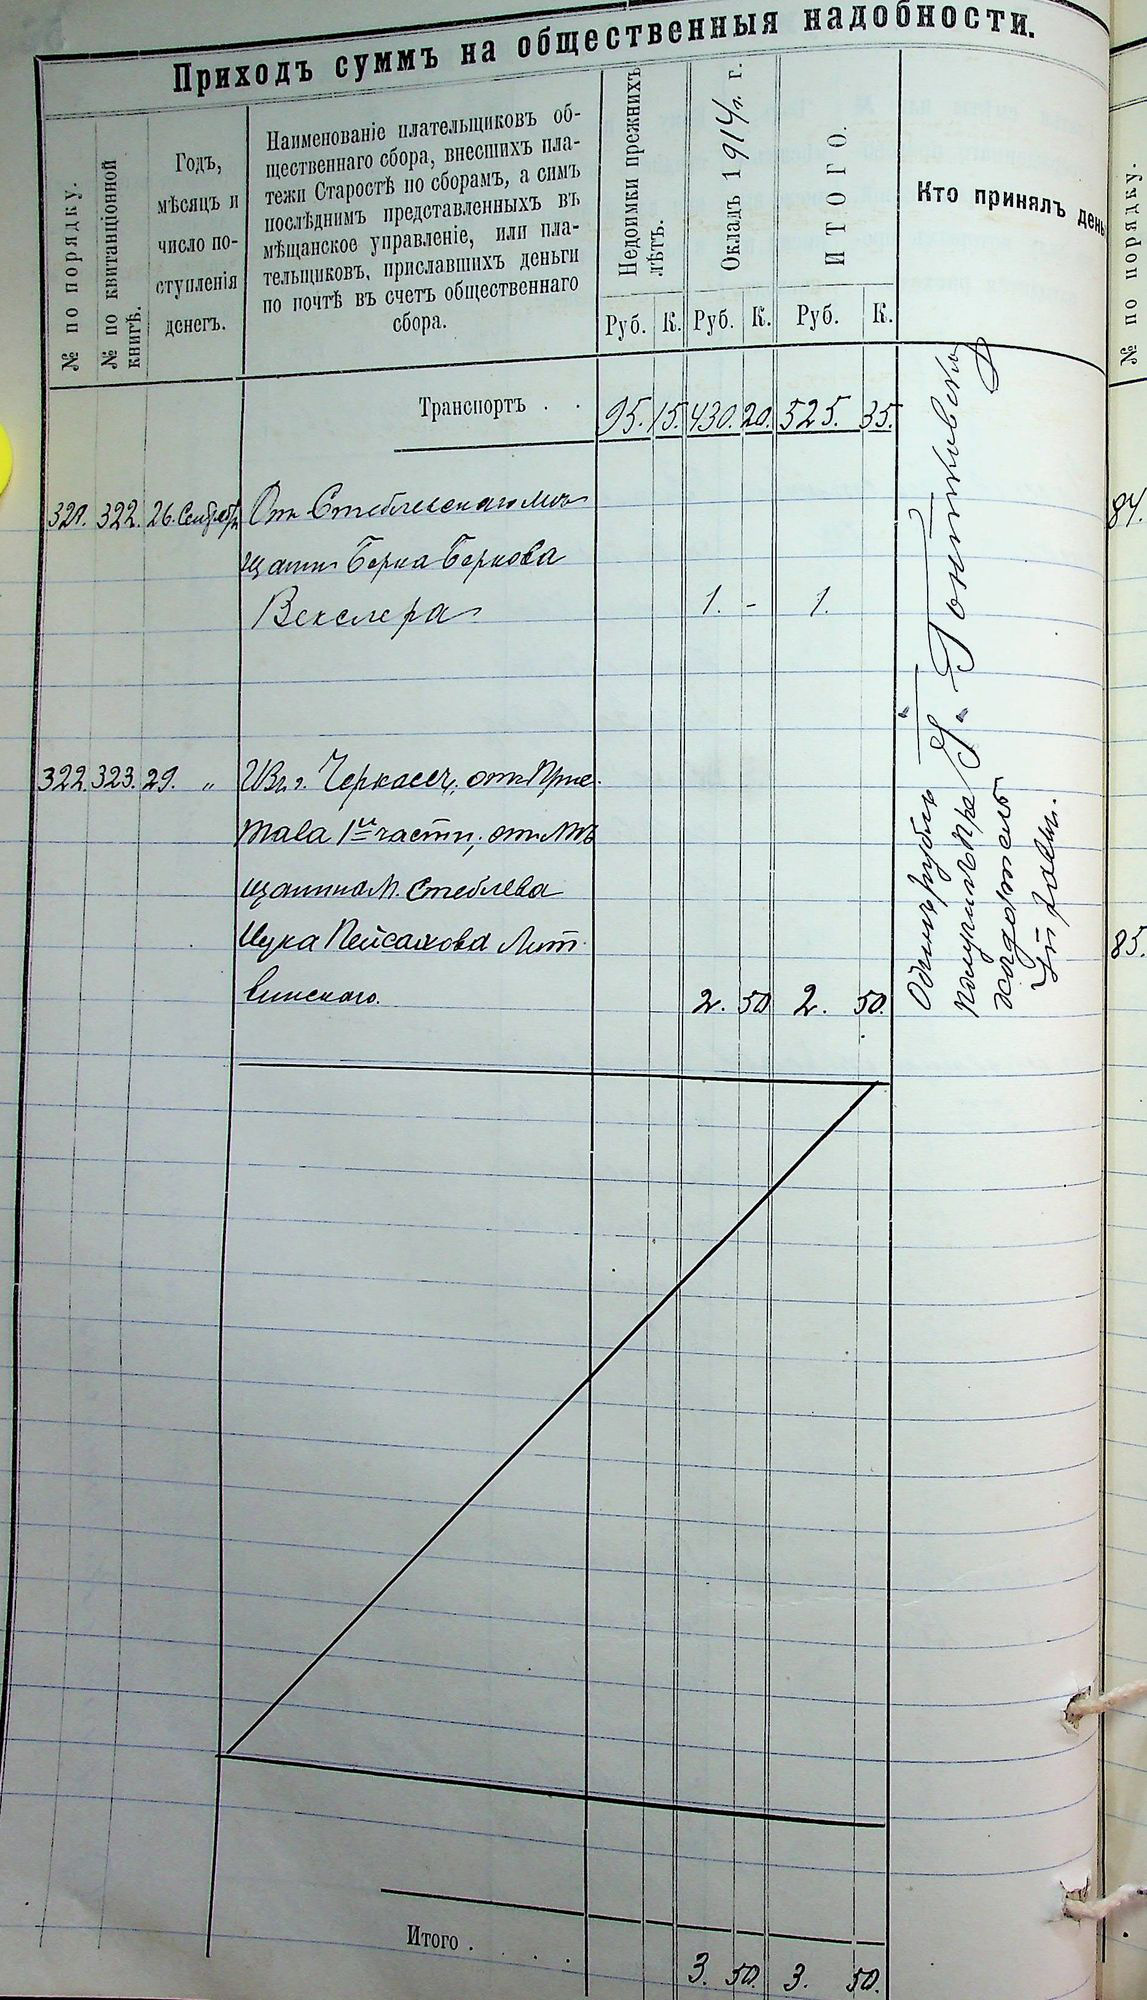 Приходъ суммъ на общественныя надобности.
№ по порядку.
№ по квитанціонной
книгѣ.
Годъ,
мѣсяцъ и
число по-
ступленія
денегъ.
Наименованіе плательщиковъ об-
щественнаго сбора, внесшихъ пла-
тежи Старостѣ по сборамъ, а симъ
послѣднимъ представленныхъ въ
мѣщанское управленіе, или пла-
тельщиковъ, приславшихъ деньги
по почтѣ въ счетъ общественнаго
сбора.
Недоимки прежнихъ
лѣтъ.
Окладъ 1914 г. г.
ИТОГО.
Кто принялъ день
Руб. К. Руб. К. Руб. К.
Транспортъ . . 95. 15. 430. 20. 525. 35.
321. 322. 26. Сентября От Стеблевскаго мѣ
щан. Берка Беркова
Векслера 1. - 1.
322. 323. 29. „ Из г. Черкассъ, отъ При-
става 1й части, от мѣ
щанина м. Стеблева
Ицка Пейсахова Лит
винскаго. 2. 50 2. 50.
Одинъ рубль
получилъ
Итого . . . . 3. 50. 3. 50.
№ по порядку.
84.
85.